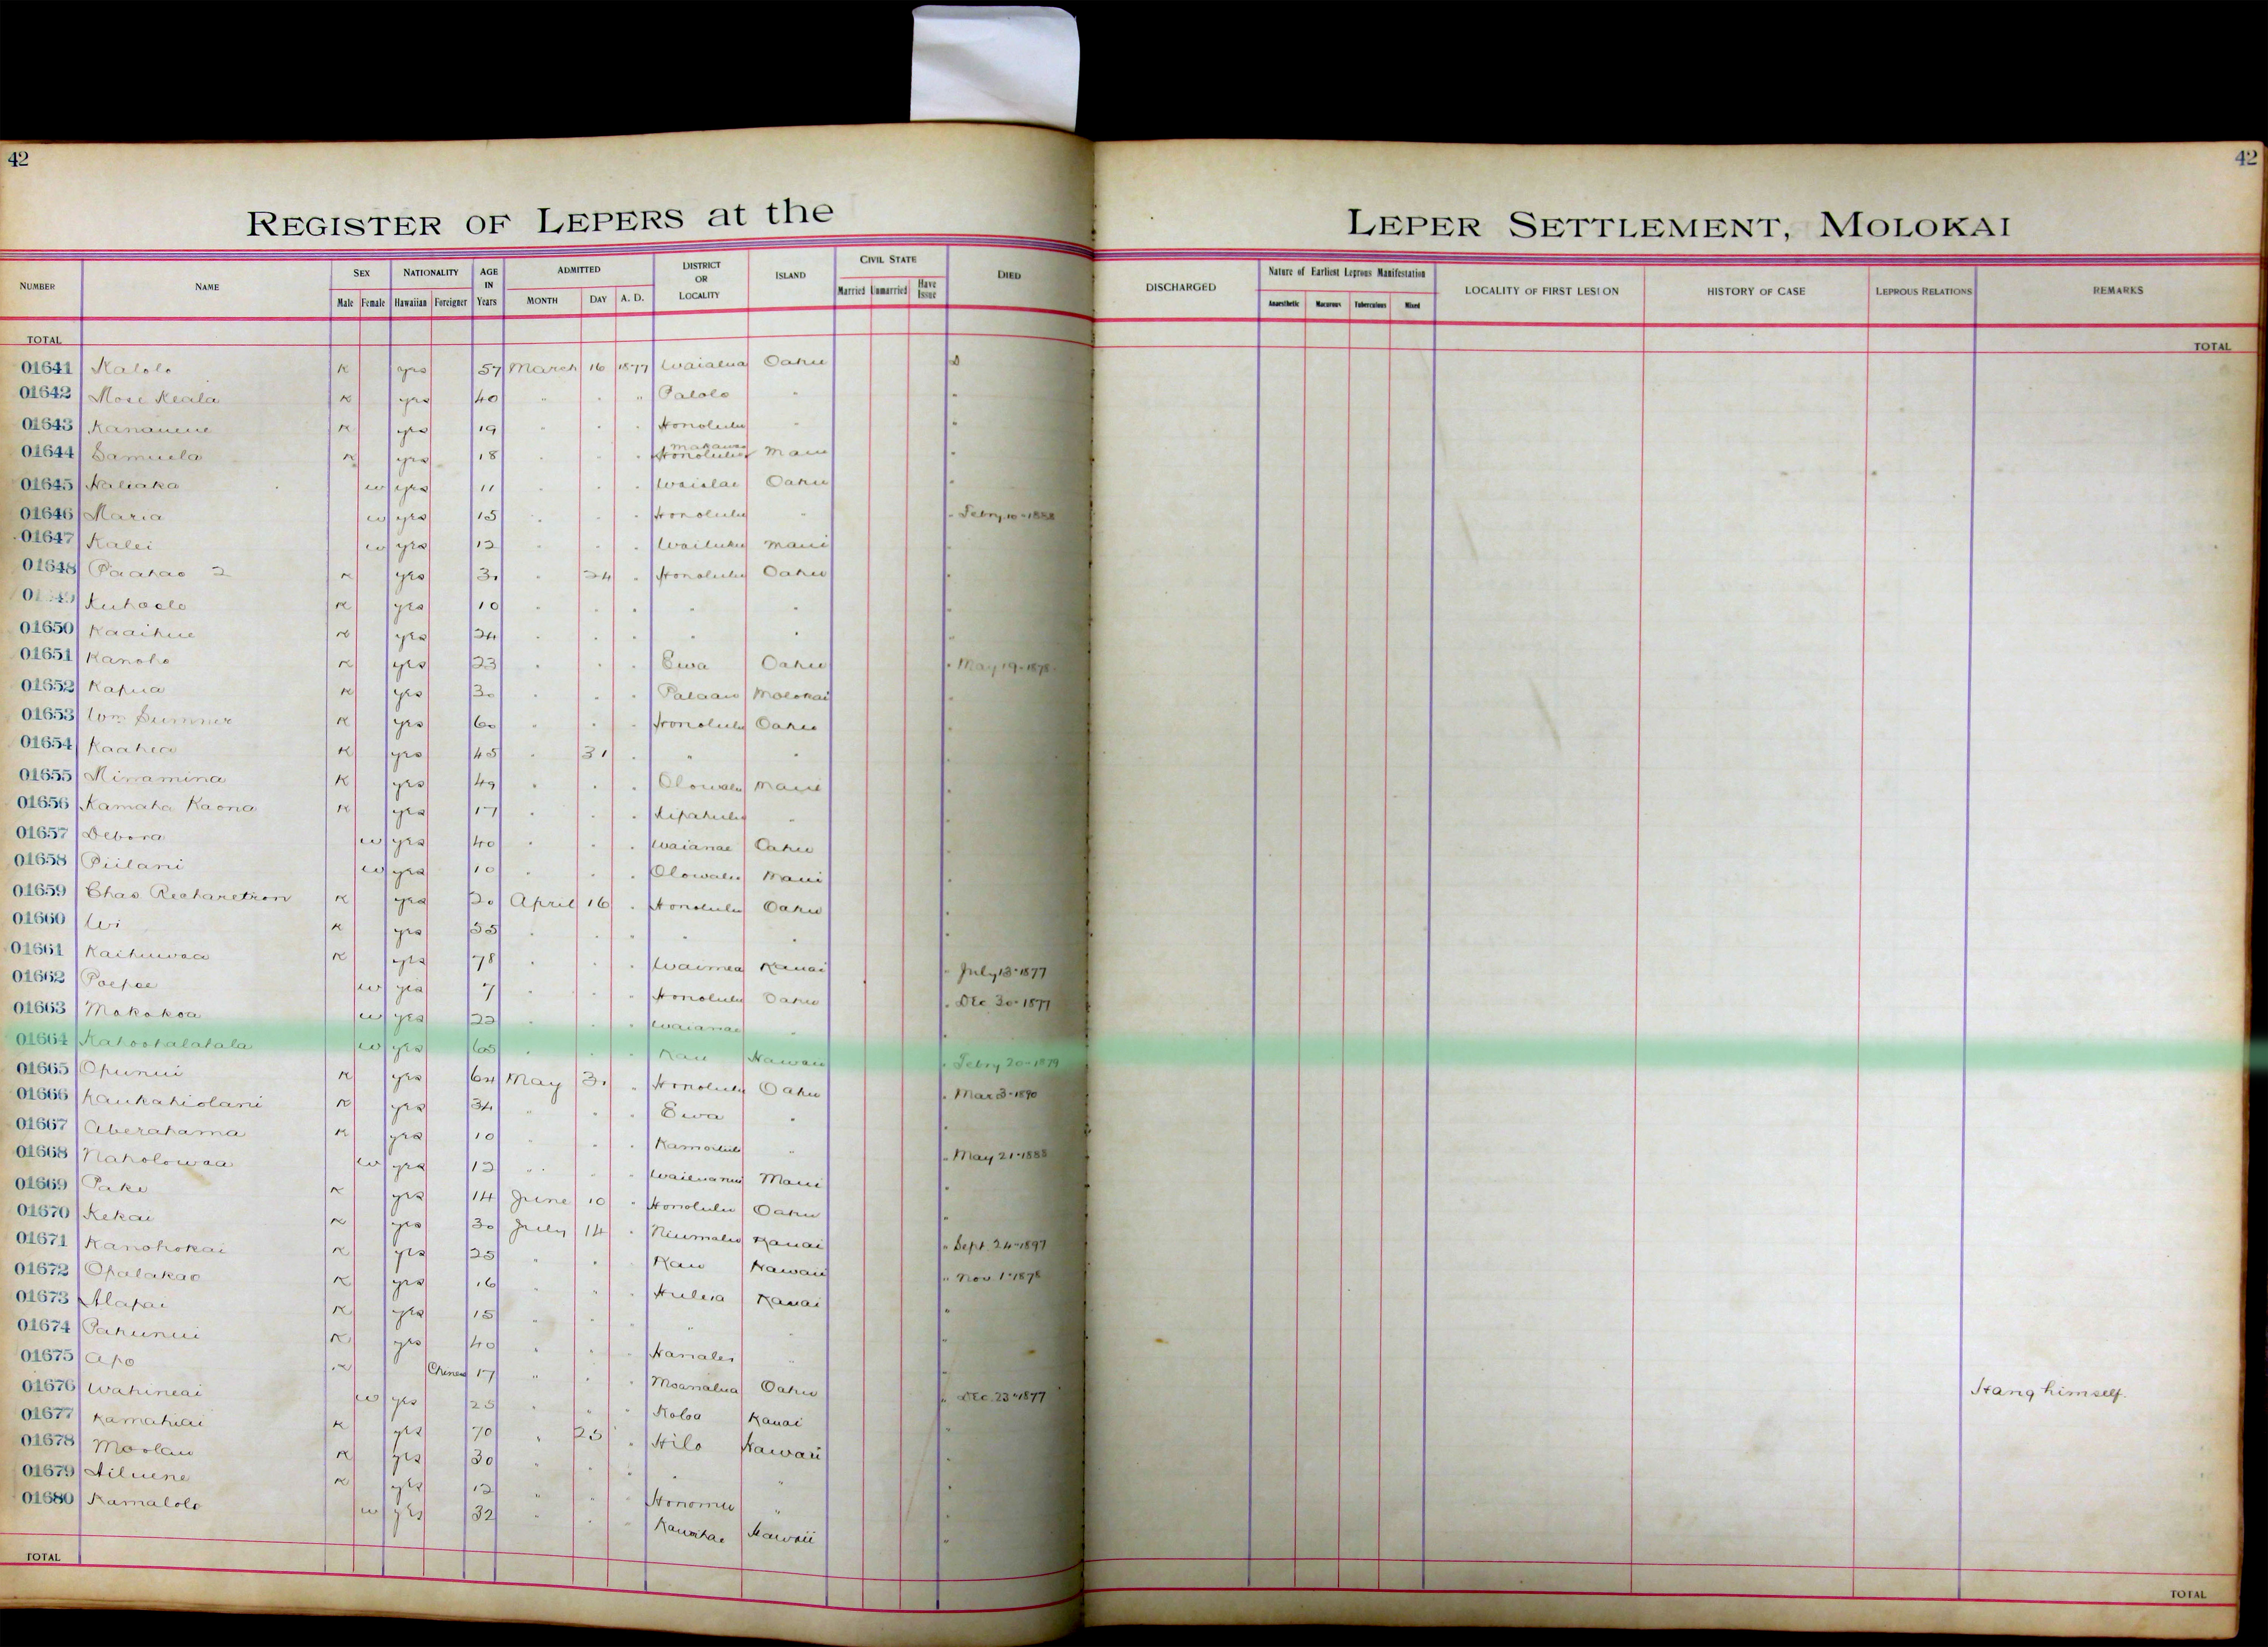 42
42
REGISTER OF LEPERS at the LEPER SETTLEMENT, MOLOKAI
NUMBER NAME SEX NATIONALITY AGE IN Years ADMITTED DISTRICT OR LOCALITY ISLAND CIVIL STATE DIED DISCHARGED Nature of Earliest Leprous Manifestation LOCALITY OF FIRST LESION HISTORY OF CASE LEPROUS RELATIONS REMARKS
Male Female Hawaiian Foreigner MONTH DAY A. D. Married Unmarried Have Issue Anaesthetic Macurous Tuberculous Mixed
TOTAL TOTAL
01641 Kalolo K yes 57 March 16 1877 Waialua Oahu D
01642 Mose Keala K yes 40 " " " Palolo " "
01643 Kananeue K yes 19 " " " Honolulu " "
01644 Samuela K yes 18 " " " Makawao Honolulu Maui "
01645 Naliaka w yes 11 " " " Waialae Oahu "
01646 Maria w yes 15 " " " Honolulu " " Febry 10-1888
01647 Kalei w yes 12 " " " Wailuku Maui "
01648 Paahao 2 K yes 30 " 24 " Honolulu Oahu "
Kuhaelo K yes 10 " " " " " "
01650 Kaaihue K yes 24 " " " " " "
01651 Kanoho K yes 23 " " " Ewa Oahu " May 19-1878
01652 Kapua K yes 30 " " " Palaau Molokai "
01653 Wm Sumner K yes 60 " " " Honolulu Oahu "
01654 Kaahea K yes 45 " 31 " " " "
01655 Minamina K yes 49 " " " Olowalu Maui "
01656 Kamaka Kaona K yes 17 " " " Kipahulu " "
01657 Debora w yes 40 " " " Waianae Oahu "
01658 Piilani w yes 10 " " " Olowalu Maui "
01659 Chas Richaretson K yes 20 April 16 " Honolulu Oahu "
01660 Wi K yes 55 " " " " " "
01661 Kaihuwaa K yes 78 " " " Waimea Kauai " July 13-1877
01662 Poepoe w yes 7 " " " Honolulu Oahu " Dec 30-1877
01663 Makakoa w yes 22 " " " Waianae " "
01664 Kahoohalahala w yes 65 " " " Kau Hawaii " Febry 20-1879
01665 Opunui K yes 64 May 31 " Honolulu Oahu " Mar 3-1890
01666 Kaukahiolani K yes 34 " " " Ewa " "
01667 Aberahama K yes 10 " " " Kamoiliili " " May 21-1888
01668 Naholowaa w yes 12 " " " Wailuanui Maui "
01669 Pake K yes 14 June 10 " Honolulu Oahu "
01670 Kekai K yes 30 July 14 " Niumalu Kauai " Sept 24-1897
01671 Kanohokai K yes 25 " " " Kau Hawaii " Nov 1-1878
01672 Opalakao K yes 16 " " " Huleia Kauai "
01673 Alapai K yes 15 " " " " " "
01674 Pahunui K yes 40 " " " Hanalei " "
01675 Apo K Chinese 17 " " " Moanalua Oahu " Dec 23-1877 Hang himself.
01676 Wahineai w yes 25 " " " Koloa Kauai "
01677 Kamahiai K yes 70 " 25 " Hilo Hawaii "
01678 Moolau K yes 30 " " " " " "
01679 Ailuene K yes 12 " " " Honomu " "
01680 Kamalolo w yes 32 " " " Kawaihae Hawaii "
TOTAL TOTAL